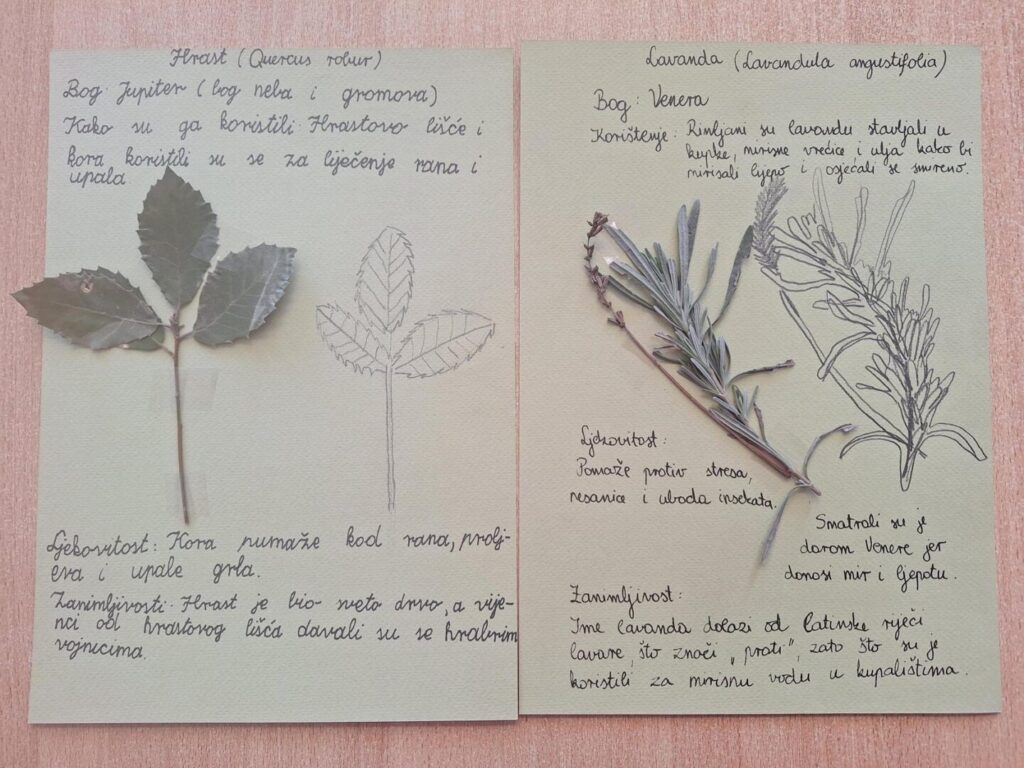 Hrast (Quercus robur)
Bog: Jupiter (bog neba i gromova)
Kako su ga koristili: Hrastovo lišće i
kora koristili su se za liječenje rana i
upala
Ljekovitost: Kora pumaže kod rana, prolj-
eva i upale grla.
Zanimljivosti: Hrast je bio sveto drvo, a vije-
nci od hrastovog lišća davali su se hrabrim
vojnicima.
Lavanda (Lavandula angustifolia)
Bog: Venera
Korištenje: Rimljani su lavandu stavljali u
kupke, mirisne vrećice i ulja kako bi
mirisali lijepo i osjećali se smireno.
Ljekovitost:
Pomaže protiv stresa,
nesanice i uboda insekata.
Smatrali su je
darom Venere jer
donosi mir i ljepotu.
Zanimljivost:
Ime lavanda dolazi od latinske riječi
lavare, što znači „prati”, zato što su je
koristili za mirisnu vodu u kupalištima.